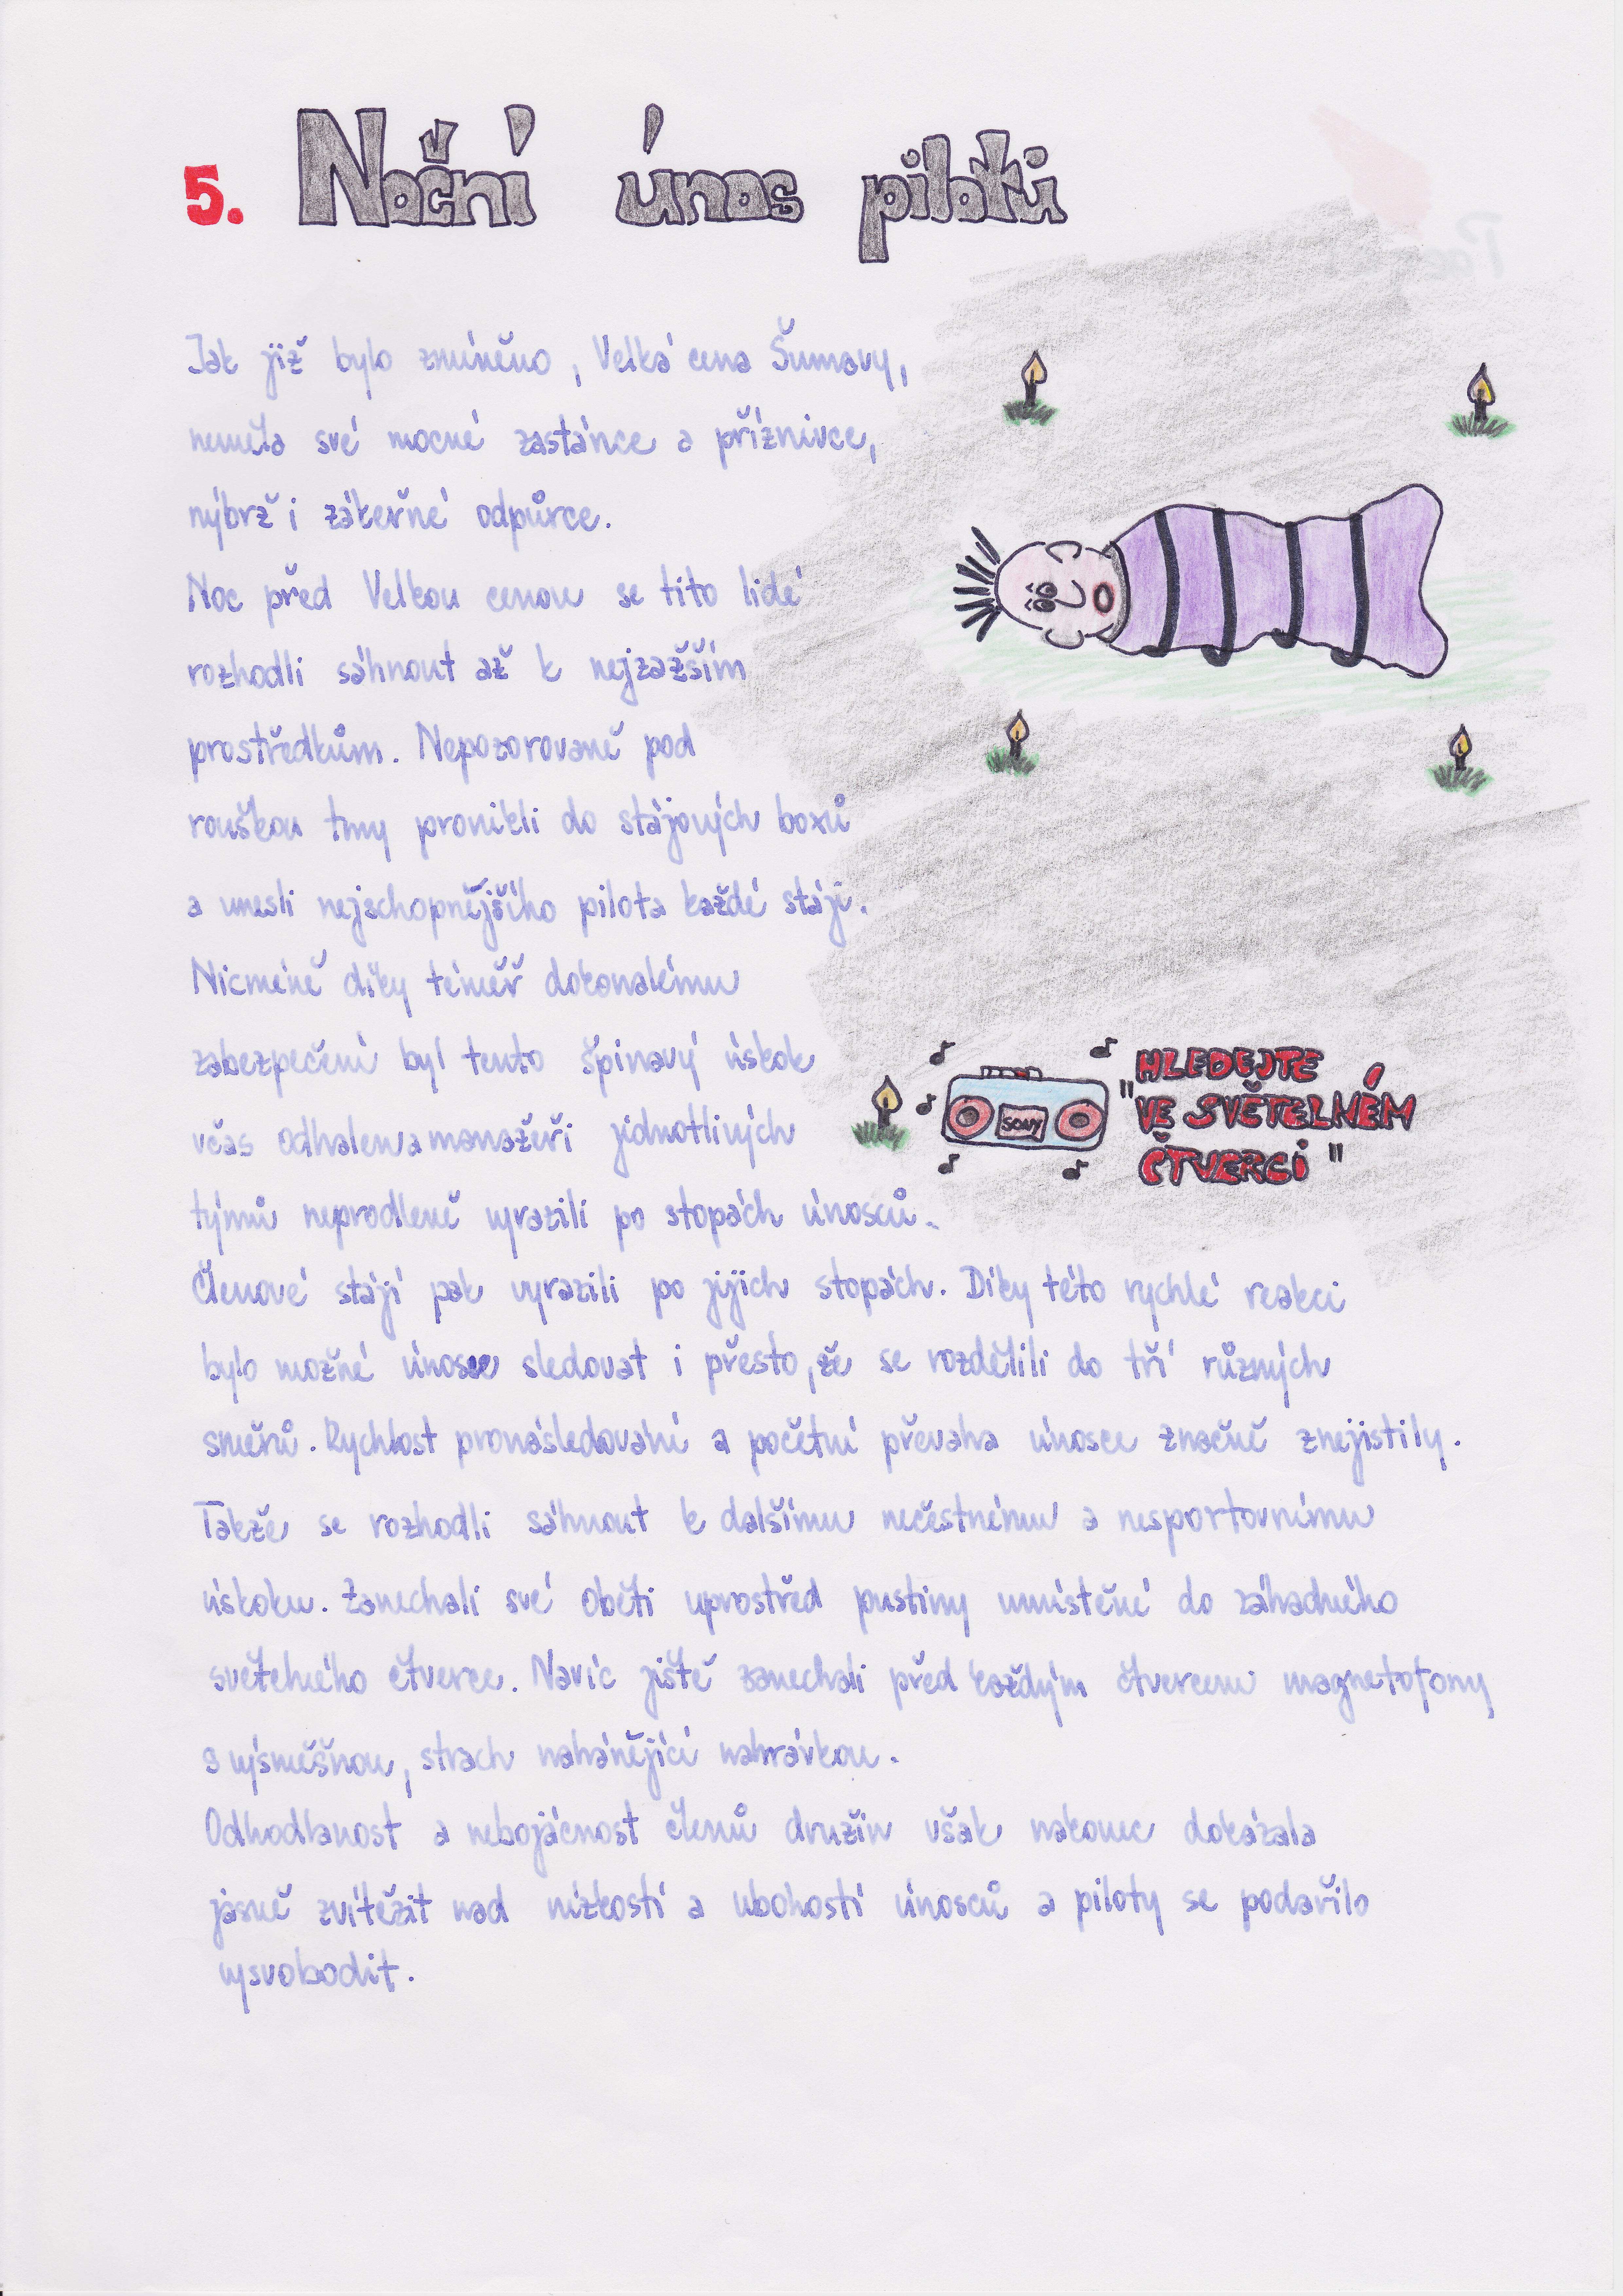 5. Noční únos pilotů
Jak již bylo zmíněno, Velká cena Šumavy,
neměla své mocné zastánce a příznivce,
nýbrž i zákeřné odpůrce.
Noc před Velkou cenou se tito lidé
rozhodli sáhnout až k nejzažším
prostředkům. Nepozorovaně pod
rouškou tmy pronikli do stájových boxů
a unesli nejschopnějšího pilota každé stáji.
Nicméně díky téměř dokonalému
zabezpečení byl tento špinavý úskok
včas odhalen a manažeři jednotlivých
týmů neprodleně vyrazili po stopách únosců.
Členové stájí pak vyrazili po jejich stopách. Díky této rychlé reakci
bylo možné únosce sledovat i přesto, že se rozdělili do tří různých
směrů. Rychlost pronásledování a početní převaha únosce značně znejistily.
Takže se rozhodli sáhnout k dalšímu nečestnému a nesportovnímu
úskoku. Zanechali své oběti uprostřed pustiny umístěné do záhadného
světelného čtverce. Navíc ještě zanechali před každým čtvercem magnetofony
s výsměšnou, strach nahánějící nahrávkou.
Odhodlanost a nebojácnost členů družin však nakonec dokázala
jasně zvítězit nad nízkostí a ubohostí únosců a piloty se podařilo
vysvobodit.
SONY
"HLEDEJTE
VE SVĚTELNÉM
ČTVERCI"